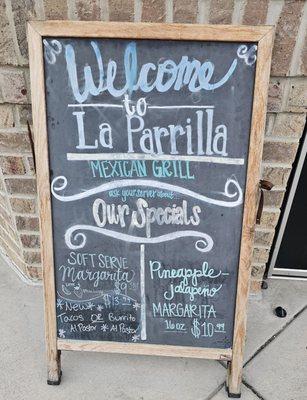 Welcome
to
La Parrilla
MEXICAN GRILL
ask your server about
Our Specials
SOFT SERVE
Margarita
*New*
Tacos OR Burrito
Al Pastor Al Pastor
Pineapple-
jalapeño
MARGARITA
16oz $10.99